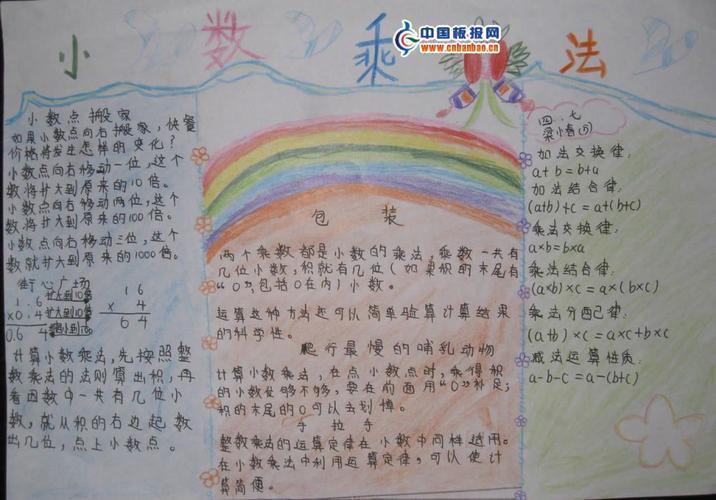 小数乘法
中国板报网
www.cnbanbao.cn
小数点搬家
如果小数点向右搬家，快餐
价格将发生怎样的变化？
小数点向右移动一位，这个
数将扩大到原来的10倍。
小数点向右移动两位，这个
数将扩大到原来的100倍。
小数点向右移动三位，这个
数就扩大到原来的1000倍。
街心广场
1.6 扩大到10倍 16
×0.4 扩大到10倍 × 4
0.64 64
计算小数乘法，先按照整
数乘法的法则算出积，再
看因数中一共有几位小
数，就从积的右边起数
出几位，点上小数点。
包装
两个乘数都是小数的乘法，乘数一共有
几位小数，积就有几位（如果积的末尾有
“0”包括0在内）小数。
运算这种方法还可以简单验算计算结果
的科学性。
爬行最慢的哺乳动物
计算小数乘法，在点小数点时，乘得积
的小数位够不够，要在前面用“0”补足；
积的末尾的0可以去掉。
手拉手
整数乘法的运算定律在小数中同样适用。
在小数乘法中利用运算定律，可以使计
算简便。
四、七
加法交换律：
a+b=b+a
加法结合律：
(a+b)+c=a+(b+c)
乘法交换律：
a×b=b×a
乘法结合律：
(a×b)×c=a×(b×c)
乘法分配律：
(a+b)×c=a×c+b×c
减法运算性质：
a-b-c=a-(b+c)